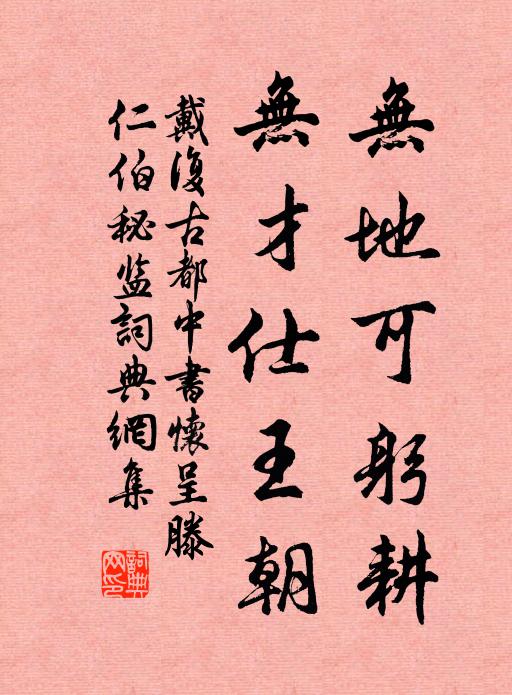 無地可躬耕
無才仕王朝
戴復古都中書懷呈滕
仁伯秘监詞典網集
詞典网印